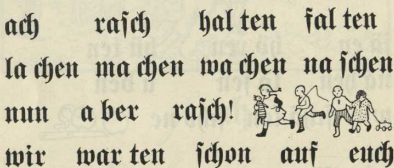 ach rasch hal ten fal ten
la chen ma chen wa chen na schen
nun a ber rasch!
wir war ten schon auf euch